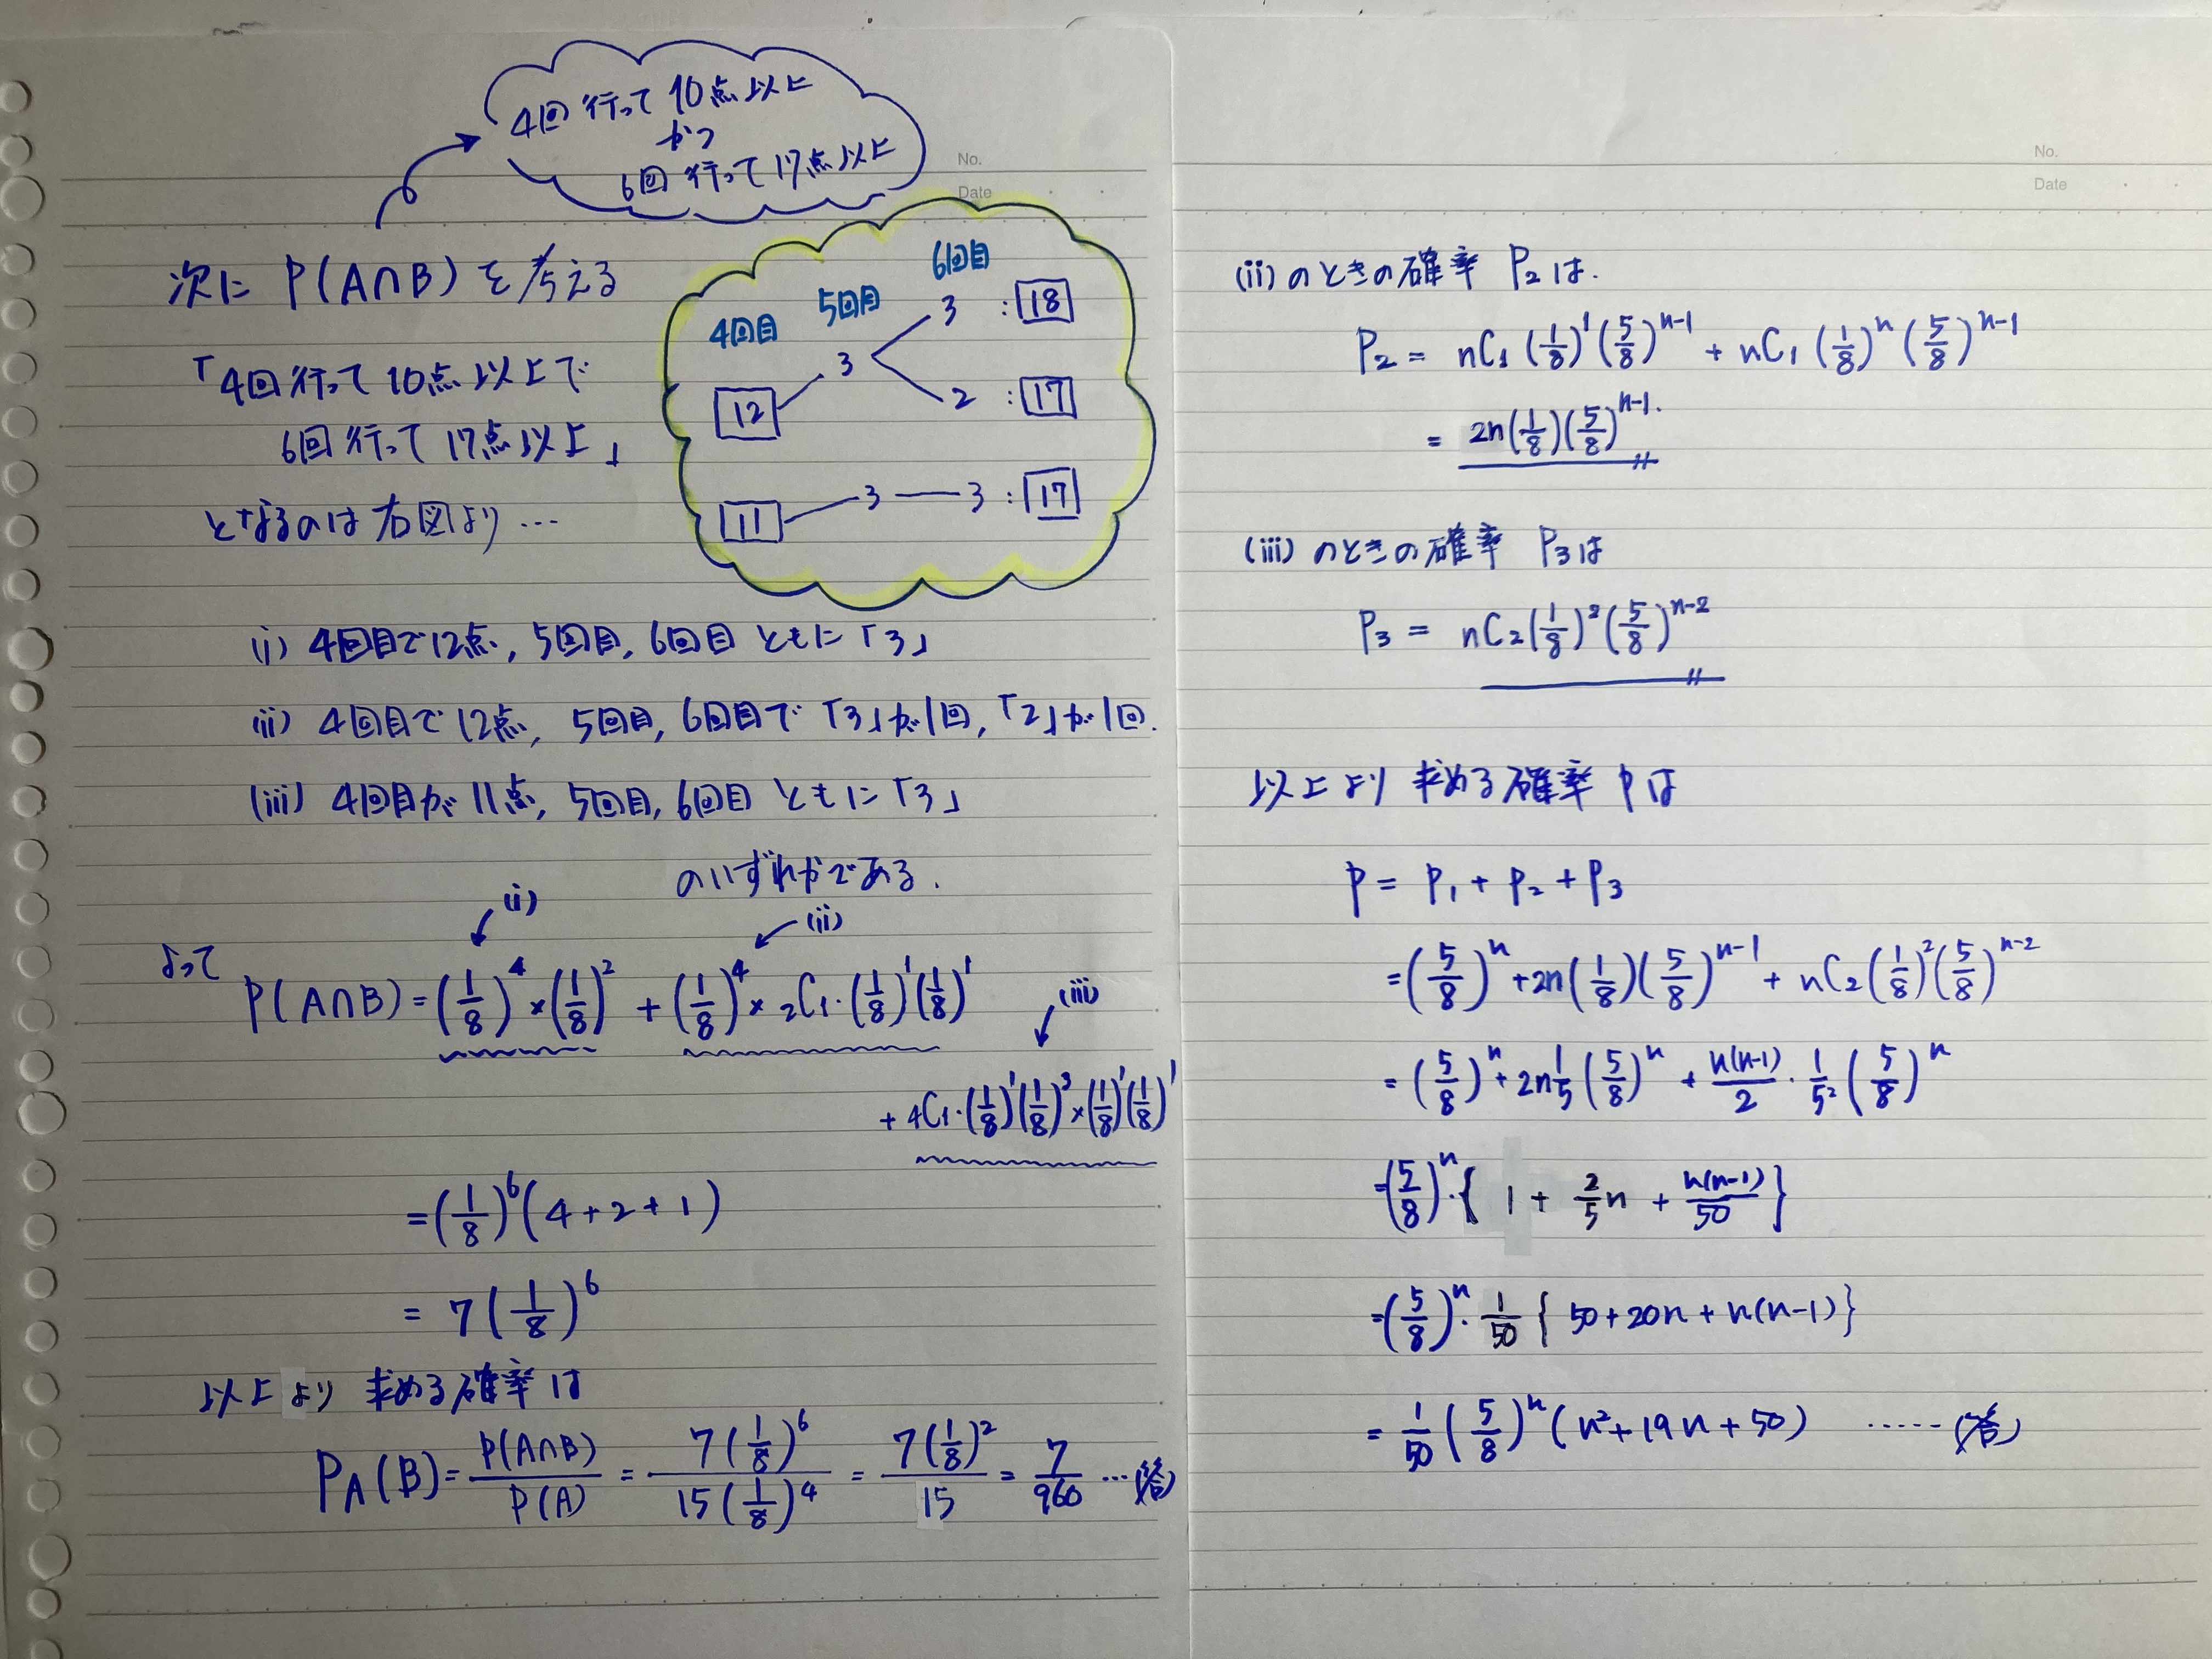 4回行って10点以上
かつ
6回行って17点以上
No.
Date
次に P(A∩B)を考える
「4回行って10点以上で
6回行って17点以上」
となるのは右図より…
4回目 5回目 6回目
12 3 3 : 18
2 : 17
11 3 3 : 17
(i) 4回目で12点, 5回目, 6回目 ともに「3」
(ii) 4回目で12点, 5回目, 6回目で「3」が1回,「2」が1回.
(iii) 4回目が11点, 5回目, 6回目 ともに「3」
のいずれかである.
(i) (ii)
よって P(A∩B) = (1/8)^4 × (1/8)^2 + (1/8)^4 × 2C1・(1/8)^1(1/8)^1
(iii)
+ 4C1・(1/8)^1(1/8)^3×(1/8)^1(1/8)^1
= (1/8)^6 (4+2+1)
= 7(1/8)^6
以上より 求める確率は
PA(B) = P(A∩B)/P(A) = 7(1/8)^6/15(1/8)^4 = 7(1/8)^2/15 = 7/960 …(答)
No.
Date
(ii)のときの確率 P2は.
P2 = nC1(1/8)^1(5/8)^n-1 + nC1(1/8)^n(5/8)^n-1
= 2n(1/8)(5/8)^n-1.
(iii)のときの確率 P3は
P3 = nC2(1/8)^2(5/8)^n-2
以上より 求める確率 Pは
P = P1 + P2 + P3
= (5/8)^n + 2n(1/8)(5/8)^n-1 + nC2(1/8)^2(5/8)^n-2
= (5/8)^n + 2n 1/5 (5/8)^n + n(n-1)/2・1/5^2 (5/8)^n
= (5/8)^n・{ 1 + 2/5 n + n(n-1)/50 }
= (5/8)^n・1/50 { 50+20n+n(n-1)}
= 1/50 (5/8)^n (n^2+19n+50) ……(答)